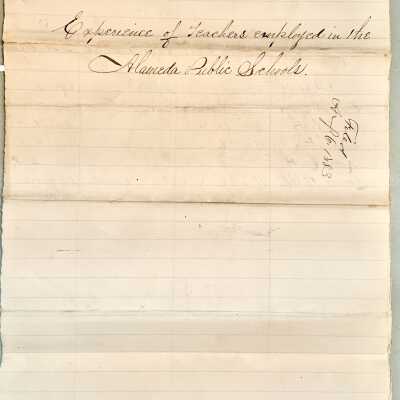 Experience of Teachers employed in the
Alameda Public Schools.
Filed
1883